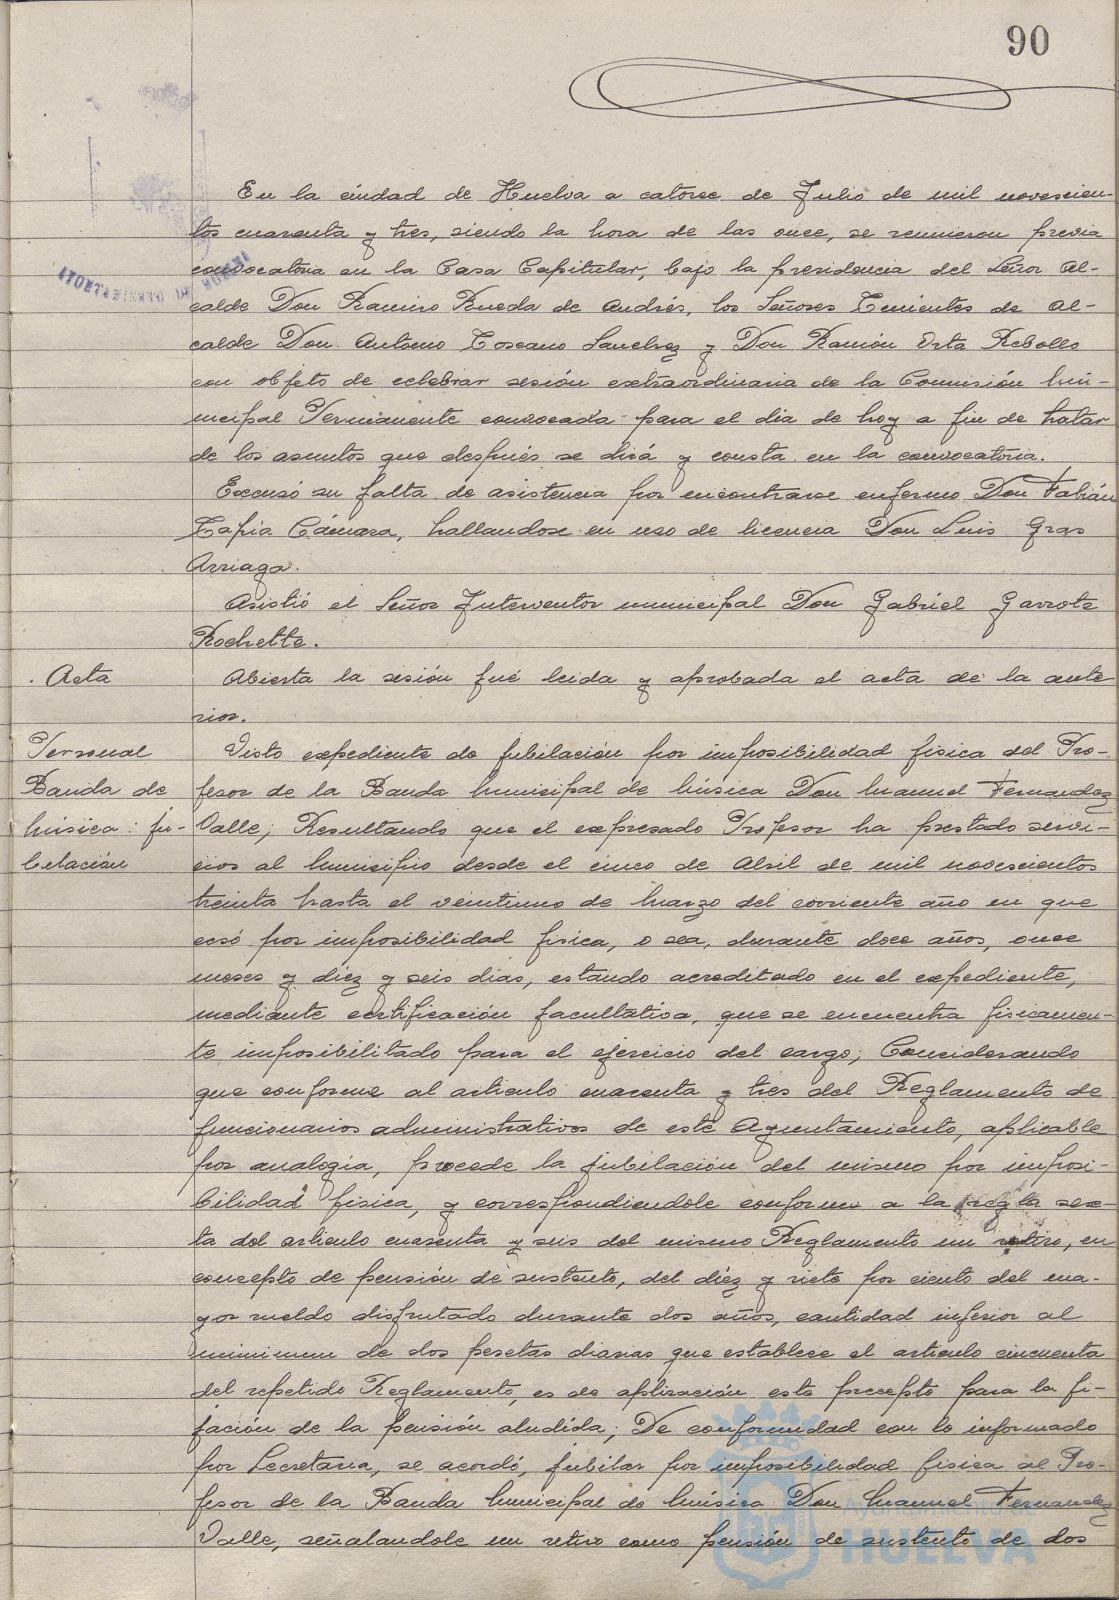 90
En la ciudad de Huelva a catorce de Julio de mil novescien-
tos cuarenta y tres, siendo la hora de las once, se reunieron previa
convocatoria en la Casa Capitular, bajo la presidencia del Señor Al-
calde Don Ramiro Rueda de Andrés, los Señores Tenientes de Al-
calde Don Antonio Toscano Sanchez y Don Ramón Orta Rebollo
con objeto de celebrar sesión extraordinaria de la Comisión Mu-
nicipal Permanente convocada para el dia de hoy a fin de tratar
de los asuntos que después se dirá y consta en la convocatoria.
Excusó su falta de asistencia por encontrarse enfermo Don Fabián
Tapia Cámara, hallandose en uso de licencia Don Luis Gras
Arriaga.
Asistió el Señor Interventor municipal Don Gabriel Garrote
Rochette.
Acta
Abierta la sesión fué leida y aprobada el acta de la ante
rior.
Personal
Banda de
Música: ju-
bilación
Visto expediente de jubilación por imposibilidad fisica del Pro-
fesor de la Banda Municipal de Música Don Manuel Fernandez
Valle; Resultando que el expresado Profesor ha prestado servi-
cios al Municipio desde el cinco de Abril de mil novescientos
treinta hasta el veintiuno de Marzo del corriente año en que
cesó por imposibilidad fisica, o sea, durante doce años, once
meses y diez y seis dias, estando acreditado en el expediente,
mediante certificación facultativa, que se encuentra fisicamen-
te imposibilitado para el ejercicio del cargo; Considerando
que conforme al articulo cuarenta y tres del Reglamento de
funcionarios administrativos de este Ayuntamiento, aplicable
por analogia, procede la jubilación del mismo por imposi-
bilidad fisica, y correspondiendole conforme a la regla sex-
ta del articulo cuarenta y seis del mismo Reglamento un retiro, en
concepto de pensión de sustento, del diez y siete por ciento del ma-
yor sueldo disfrutado durante dos años, cantidad inferior al
minimum de dos pesetas diarias que establece el articulo cincuenta
del repetido Reglamento, es de aplicación este precepto para la fi-
jación de la pensión aludida; De conformidad con lo informado
por Secretaria, se acordó, jubilar por imposibilidad fisica al Pro-
fesor de la Banda Municipal de Música Don Manuel Fernandez
Valle, señalandole un retiro como pensión de sustento de dos
Ayuntamiento de
HUELVA